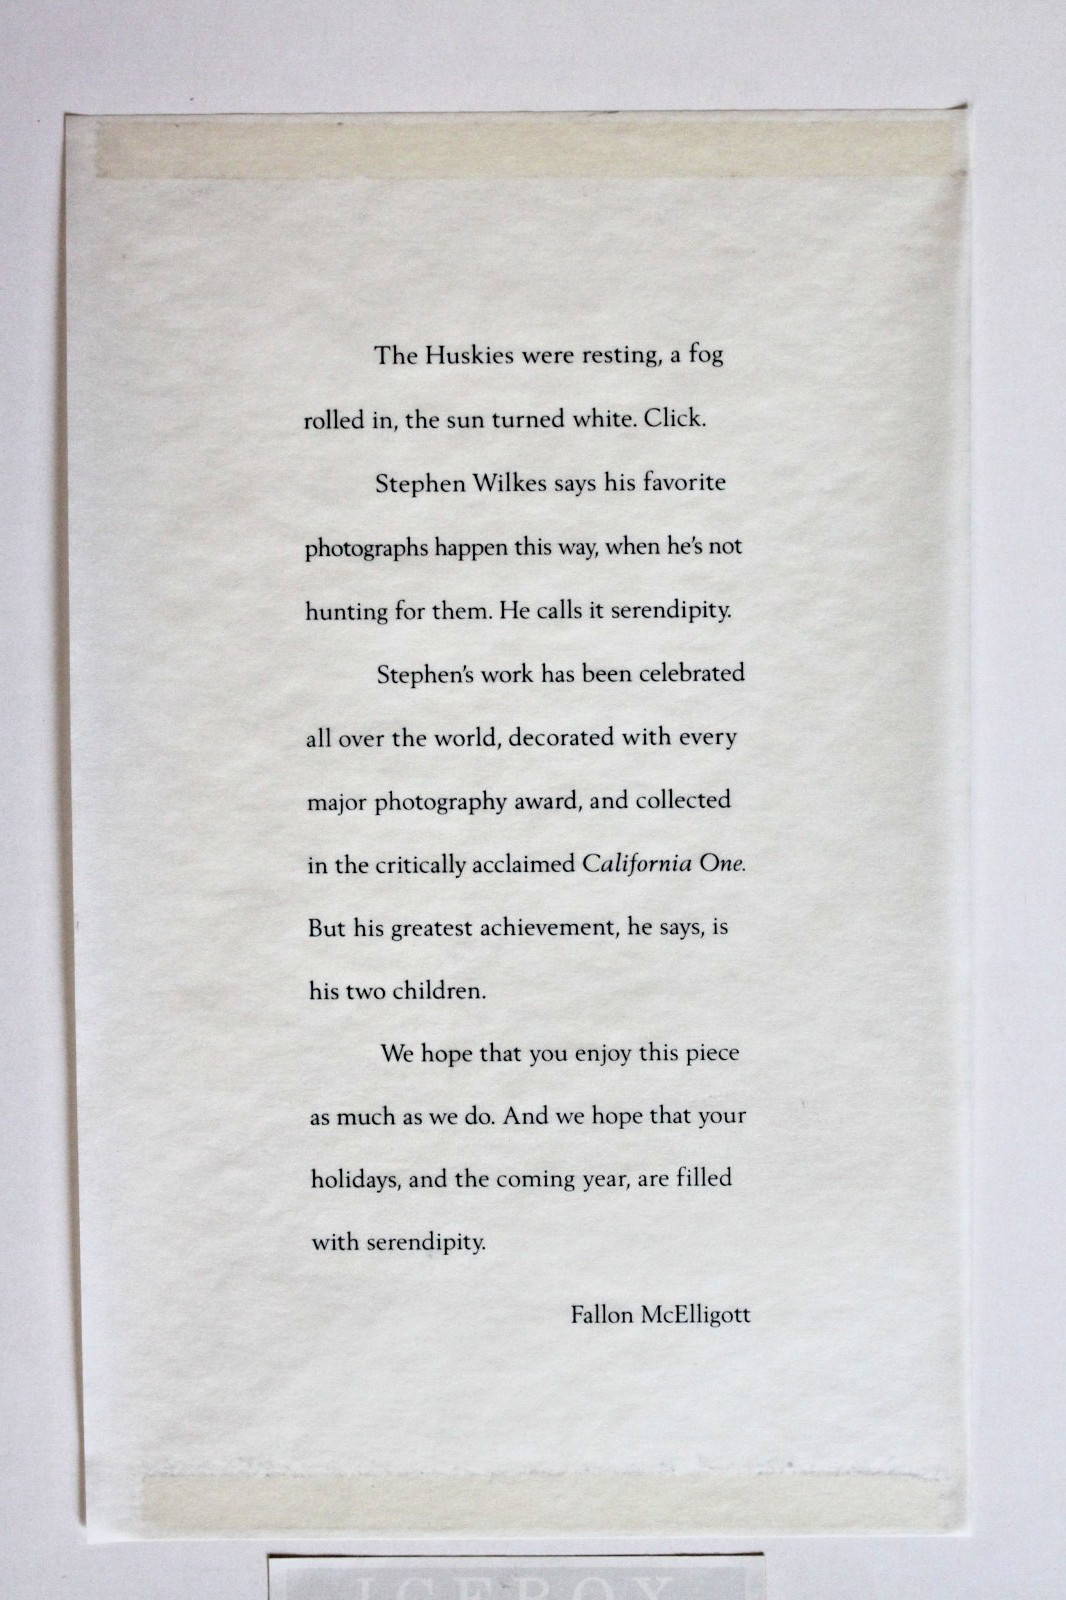 The Huskies were resting, a fog
rolled in, the sun turned white. Click.
Stephen Wilkes says his favorite
photographs happen this way, when he's not
hunting for them. He calls it serendipity.
Stephen's work has been celebrated
all over the world, decorated with every
major photography award, and collected
in the critically acclaimed California One.
But his greatest achievement, he says, is
his two children.
We hope that you enjoy this piece
as much as we do. And we hope that your
holidays, and the coming year, are filled
with serendipity.
Fallon McElligott
ICEBOX